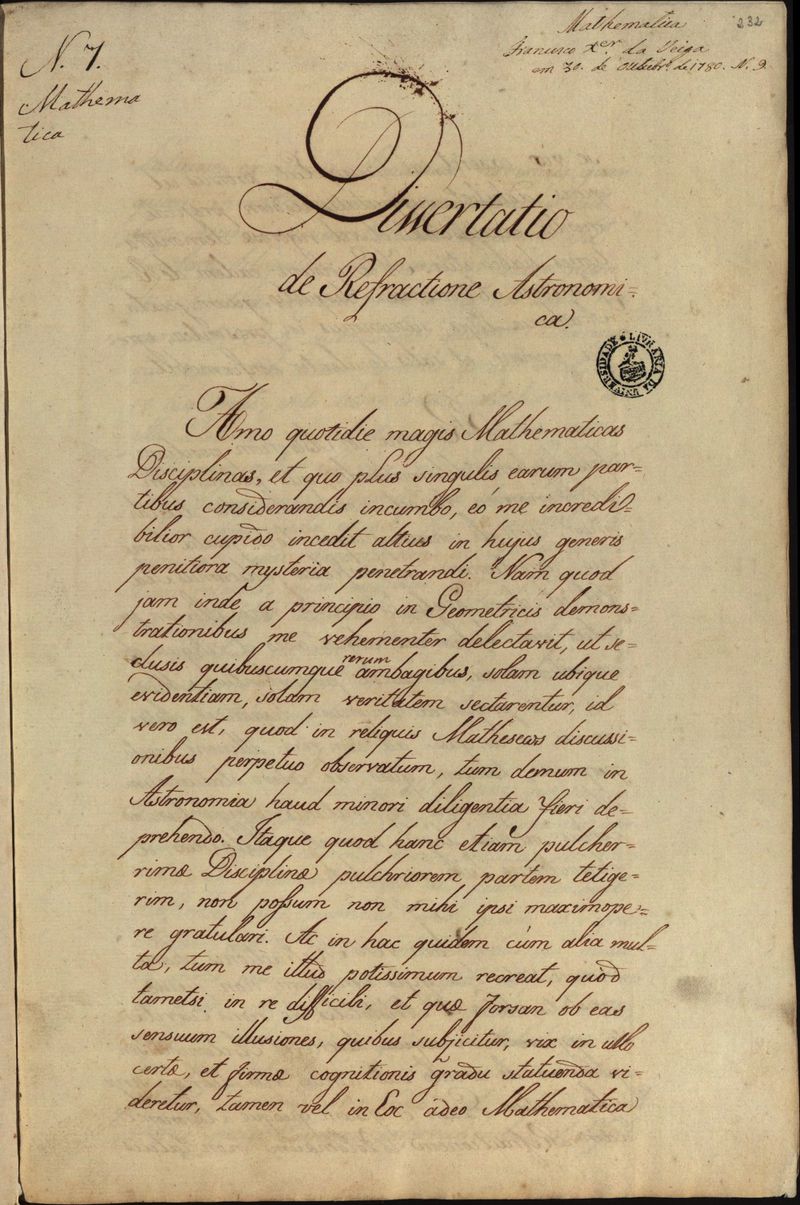 N. 7.
Mathema
tica
Mathematica
232
Francisco X.er da Veiga
em 30. de Outubr.º de 1780. N. 9.
Dissertatio
de Refractione Astronomi=
ca.
LIVRARIA DA UNIVERSIDADE
Amo quotidie magis Mathematicas
Disciplinas, et quo plus singulis earum par=
tibus considerandis incumbo, eó me incredi=
bilior cupido incedit altius in hujus generis
penitiora mysteria penetrandi. Nam quod
jam inde a principio in Geometricis demons=
trationibus me vehementer delectavit, ut se=
clusis quibuscumque rerum ambagibus, solam ubique
evidentiam, solam veritatem sectarentur, id
vero est, quod in reliquis Mathesews discussi=
onibus perpetuo observatum, tum demum in
Astronomia haud minori diligentia fieri de=
prehendo. Itaque quod hanc etiam pulcher=
rimæ Disciplinæ pulchriorem partem tetige=
rim, non possum non mihi ipsi maximope=
re gratulari. Ac in hac quidem cúm alia mul=
ta, tum me illud potissimum recreat, quod
tametsi in re difficili, et quæ forsan ob eas
sensuum illusiones, quibus subjicitur, vix in ullo
certæ, et firmæ cognitionis gradu statuenda vi=
deretur, tamen vel in Eoc ádeo Mathematica